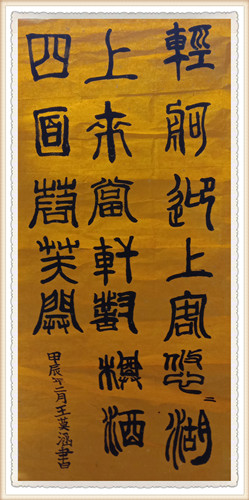 輕舸迎上客悠二湖
上來當軒對樽酒
四面蓉芙開
甲辰年二月王英涵書